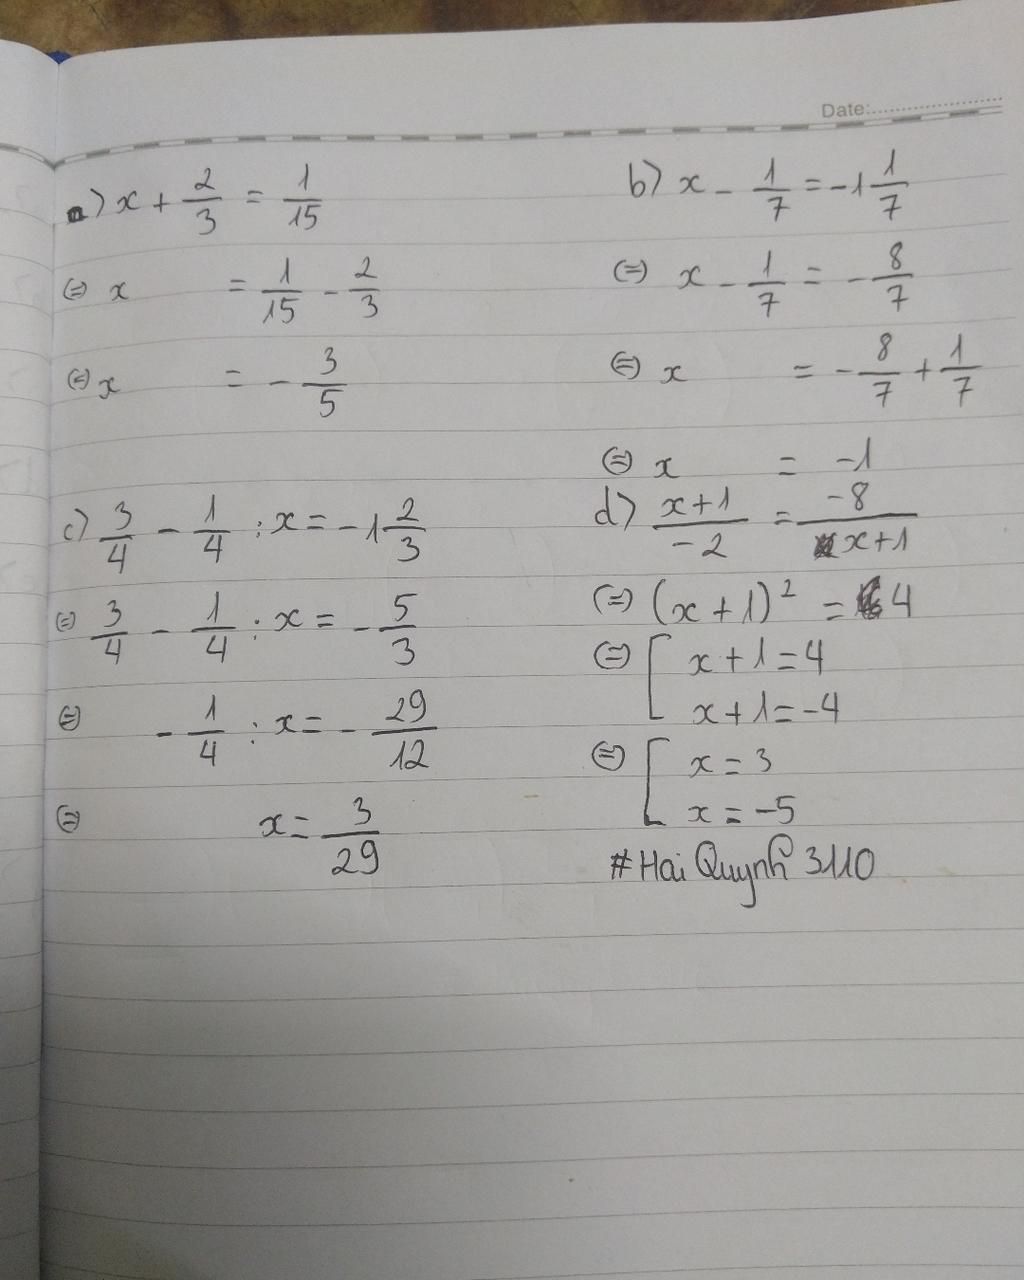 Date:
a) x + 2/3 = 1/15
(=) x = 1/15 - 2/3
(=) x = - 3/5
b) x - 1/7 = -1 1/7
(=) x - 1/7 = - 8/7
(=) x = - 8/7 + 1/7
(=) x = -1
c) 3/4 - 1/4 : x = -1 2/3
(=) 3/4 - 1/4 : x = - 5/3
(=) - 1/4 : x = - 29/12
(=) x = 3/29
d) (x+1)/(-2) = (-8)/(x+1)
(=) (x+1)² = 4
(=) [ x+1=4
x+1=-4
(=) [ x=3
x=-5
#Hai Quynh 3110